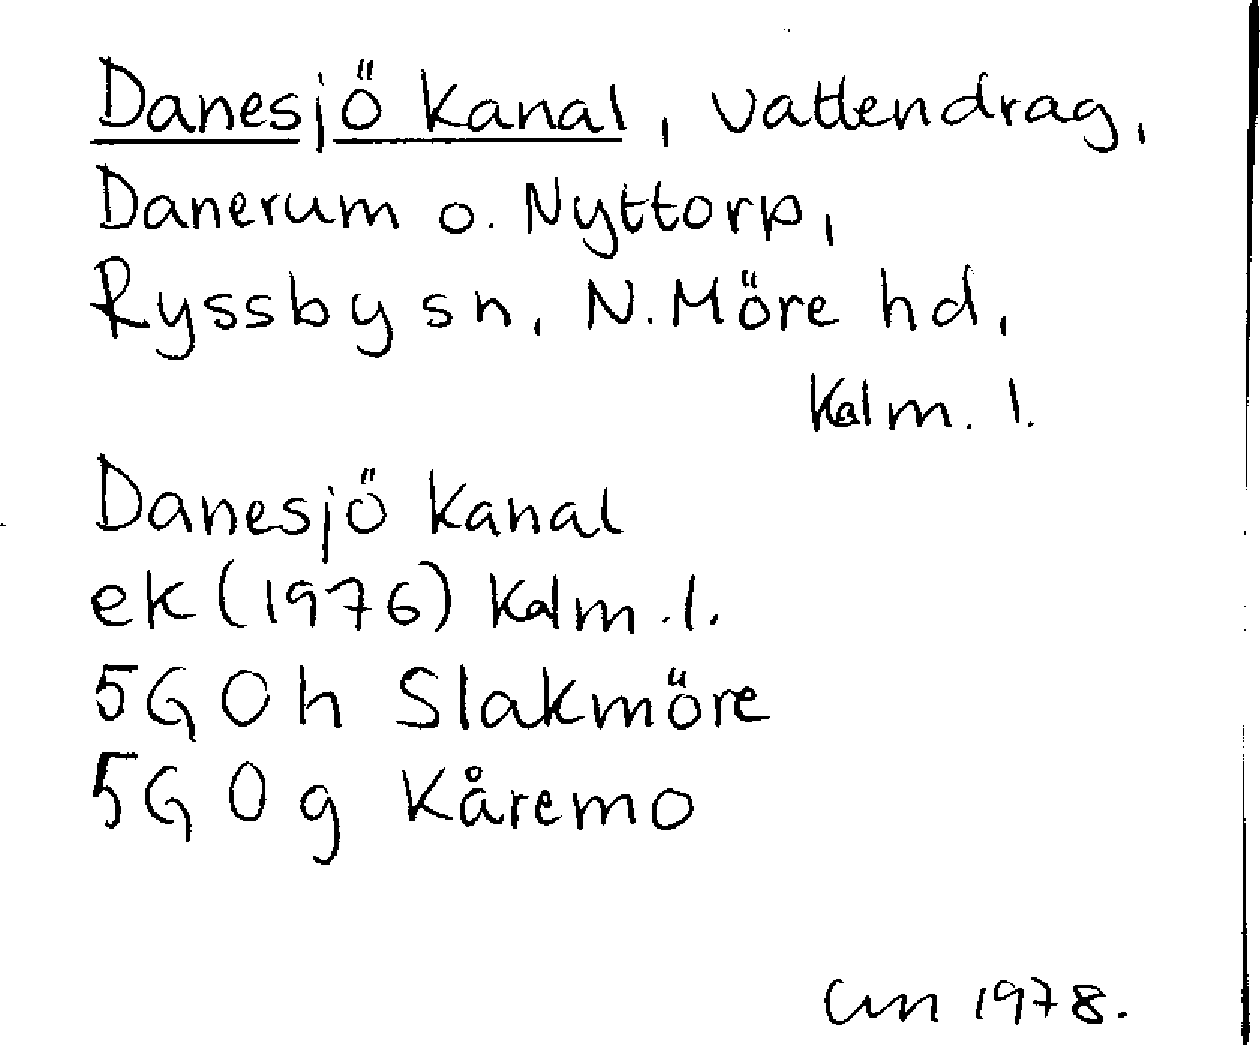 Danesjö kanal, vattendrag,
Danerum o. Nyttorp,
Ryssby sn, N. Möre hd,
Kalm. l.
Danesjö kanal
ek (1976) Kalm. l.
5G 0h Slakmöre
5G 0g Kåremo
1978.